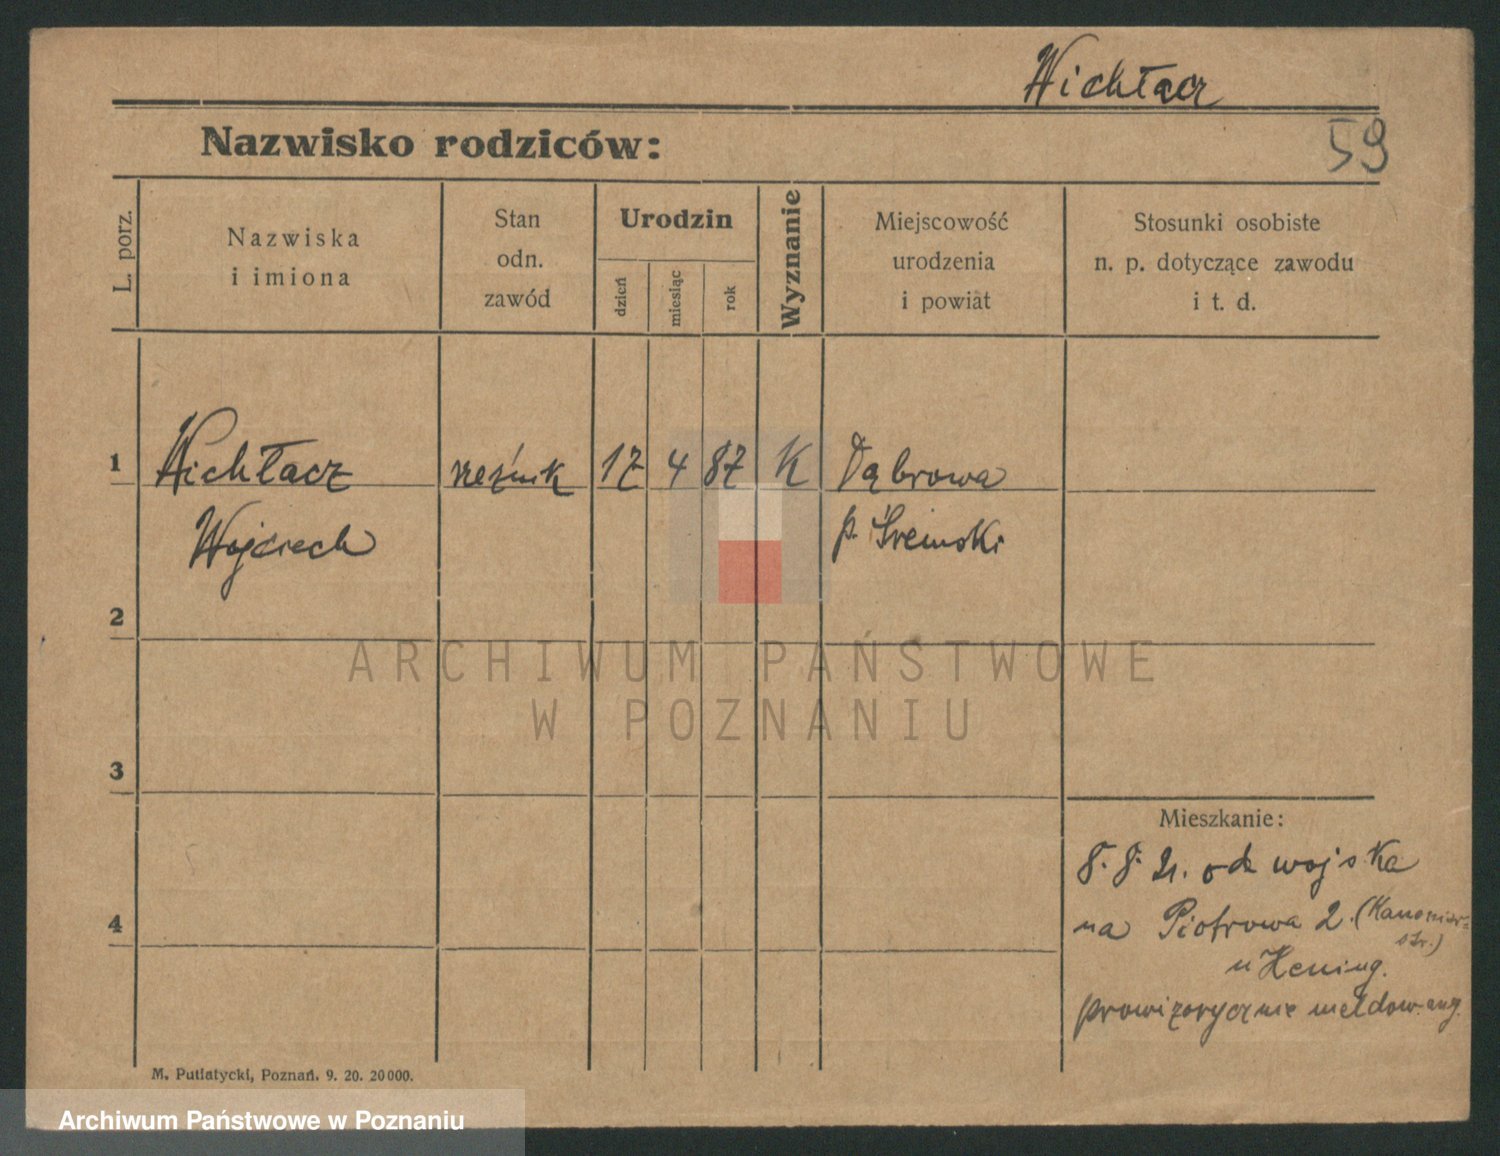 Wichłacz
59
Nazwisko rodziców:
L. porz.
Nazwiska
i imiona
Stan
odn.
zawód
Urodzin
dzień
miesiąc
rok
Wyznanie
Miejscowość
urodzenia
i powiat
Stosunki osobiste
n. p. dotyczące zawodu
i t. d.
1 Wichłacz rzeźnik 17 4 87 K Dąbrowa
Wojciech p. Śremski
2
ARCHIWUM PAŃSTWOWE
W POZNANIU
3
Mieszkanie:
8. 8. 21. od wojska
na Piotrowa 2. (Kanonier-
str.)
4
u Hening.
prowizorycznie meldow.
M. Putiatycki, Poznań. 9. 20. 20000.
Archiwum Państwowe w Poznaniu